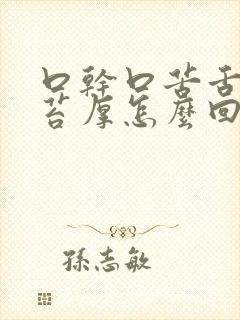 口幹口苦舌
苔厚怎麽回
孫志敏